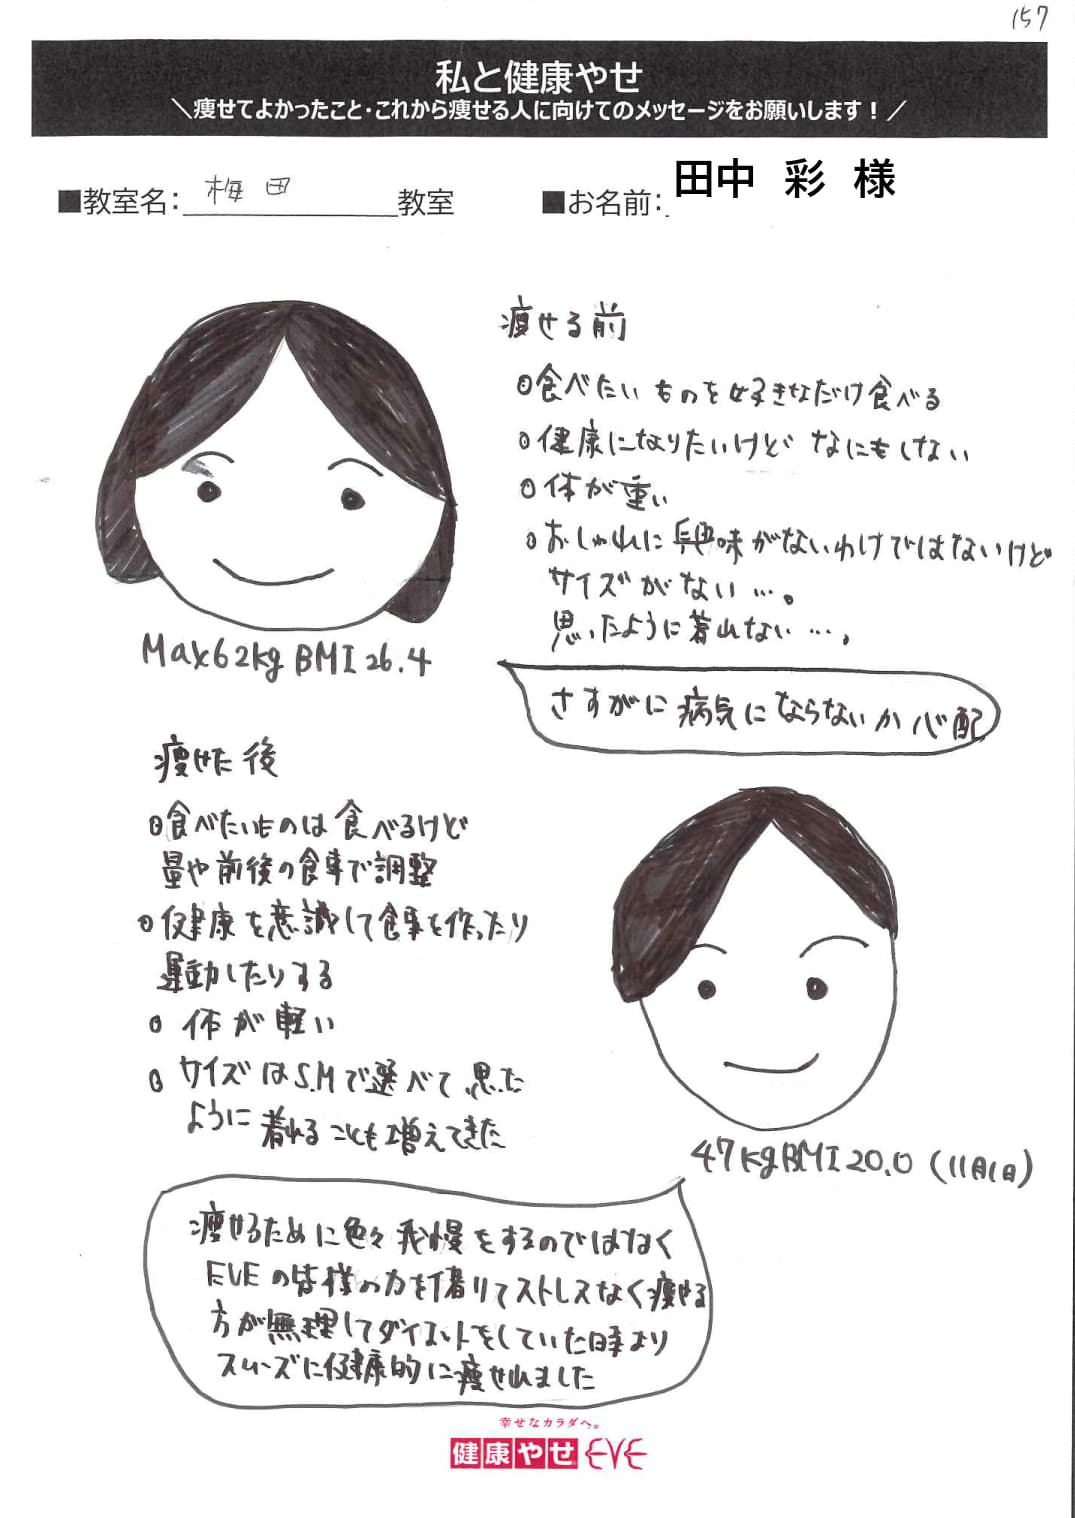 157
私と健康やせ
＼痩せてよかったこと・これから痩せる人に向けてのメッセージをお願いします！／
■教室名：梅田教室
■お名前：田中 彩 様
痩せる前
○食べたいものを好きなだけ食べる
○健康になりたいけど なにもしない
○体が重い
○おしゃれに興味がないわけではないけど
サイズがない…。
思ったように着れない…。
Max62kg BMI 26.4
さすがに病気にならないか心配
痩せた後
○食べたいものは食べるけど
量や前後の食事で調整
○健康を意識して食事を作ったり
運動したりする
○体が軽い
○サイズはS.Mで選べて、思った
ように着れることも増えてきた
47kg BMI 20.0 (11月1日)
痩せるために色々我慢をするのではなく
EVEの皆様の力を借りてストレスなく痩せる
方が無理してダイエットをしていた時より
スムーズに健康的に痩せれました
幸せなカラダへ。
健康やせEVE